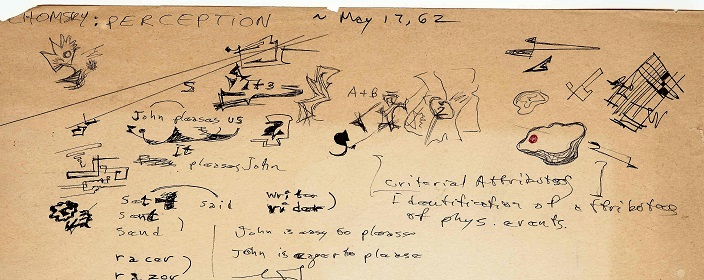 CHOMSKY: PERCEPTION ~ May 17, 62
S
A+B
John pleases us
It
pleases John
[Criterial Attributes]
Identification of attributes
of phys. events.
sat said writer
sent rider)
send)
John is easy to please
John is eager to please
racer)
razor